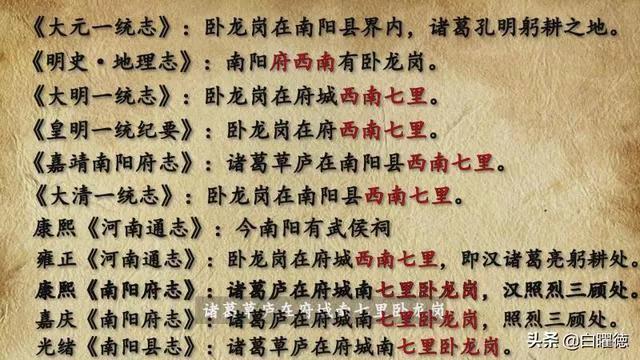 《大元一统志》：卧龙岗在南阳县界内，诸葛孔明躬耕之地。
《明史·地理志》：南阳府西南有卧龙岗。
《大明一统志》：卧龙岗在府城西南七里。
《皇明一统纪要》：卧龙岗在府西南七里。
《嘉靖南阳府志》：诸葛草庐在南阳县西南七里。
《大清一统志》：卧龙岗在南阳县西南七里。
康熙《河南通志》：今南阳有武侯祠
雍正《河南通志》：卧龙岗在府城西南七里，即汉诸葛亮躬耕处。
康熙《南阳府志》：诸葛草庐在府城南七里卧龙岗，汉照烈三顾处。
诸葛草庐在府城南七里卧龙岗
嘉庆《南阳府志》：诸葛草庐在府城南七里卧龙岗，照烈三顾处。
光绪《南阳县志》：诸葛草庐在府城南七里卧龙岗。
头条 @白曜德